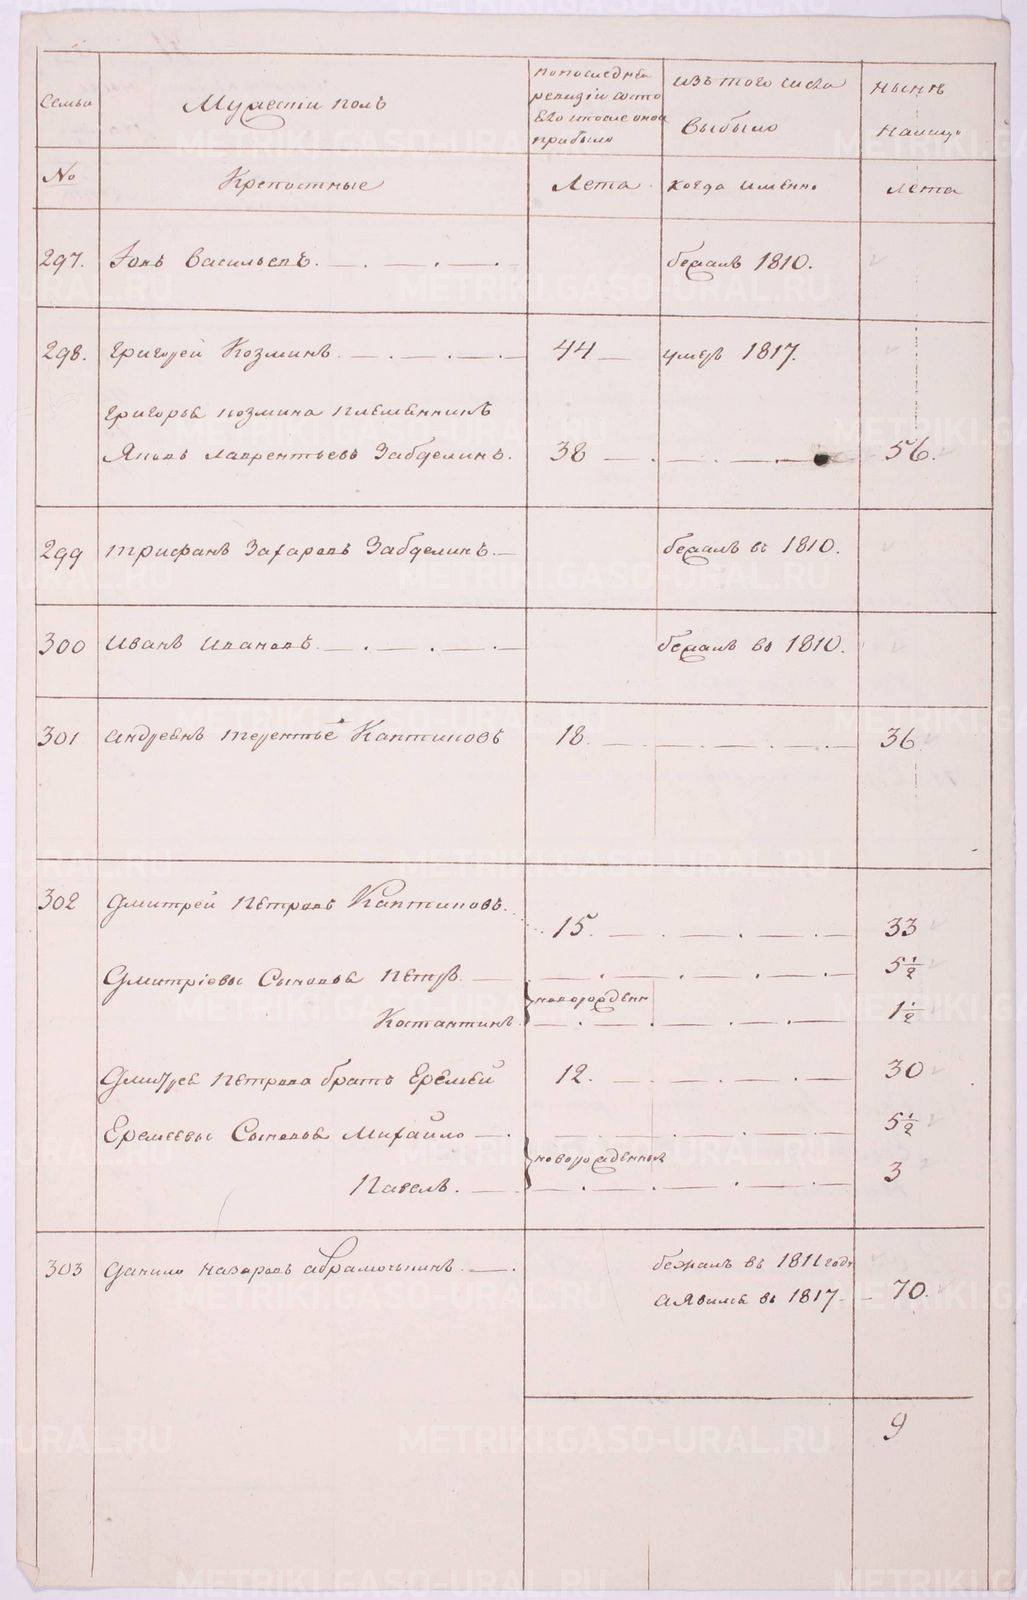 Семьи
Мужескiй полъ
по последней
ревизiи состо
яло и после оной
прибыло
изъ того числа
выбыло
ныне
на лицо
№
Крепостные
Лета
когда именно
лета
297. Iовъ Васильевъ. бежалъ 1810.
298. Григорей Козминъ. 44 умеръ 1817.
Григорья Козмина племянникъ
Яковъ Лаврентьевъ Забделинъ. 38 56.
299 Трифанъ Захаровъ Забделинъ. бежалъ въ 1810.
300 Иванъ Ивановъ. бежалъ въ 1810.
301 Андреянъ Терентье Каптиновъ 18. 36
302 Дмитрей Петровъ Каптиновъ. 15. 33
Дмитрiевы Сыновья Петръ 5 1/2
новорожден
Костантинъ 1 1/2
Дмитрея Петрова братъ Еремей 12. 30
Еремеевы Сыновья Михайло 5 1/2
новорожденныя
Павелъ. 3
303 Данило Назаровъ бежалъ въ 1811 годе
а явился въ 1817 70.
9
METRIKI.GASO-URAL.RU